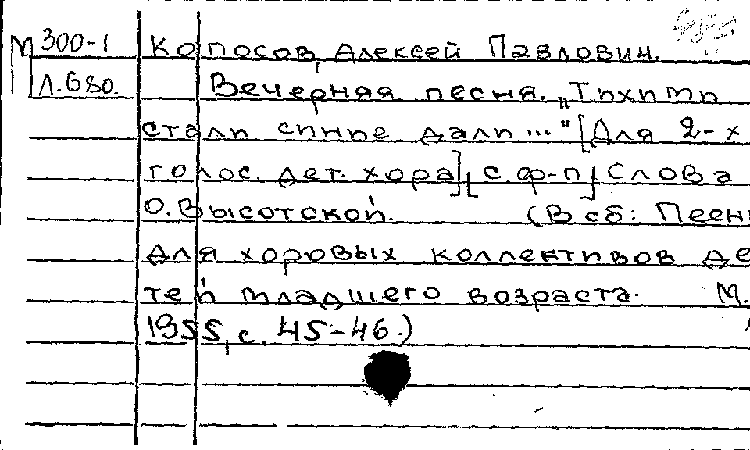 М 300-1 Копосов, Алексей Павлович.
Л.680. Вечерняя песня. „Тихими
стали синие дали..." [Для 2-х
голос. дет. хора] [с ф-п] Слова
О. Высотской. (В сб: Песни
для хоровых коллективов де
тей младшего возраста. М.
1955, с. 45-46.)